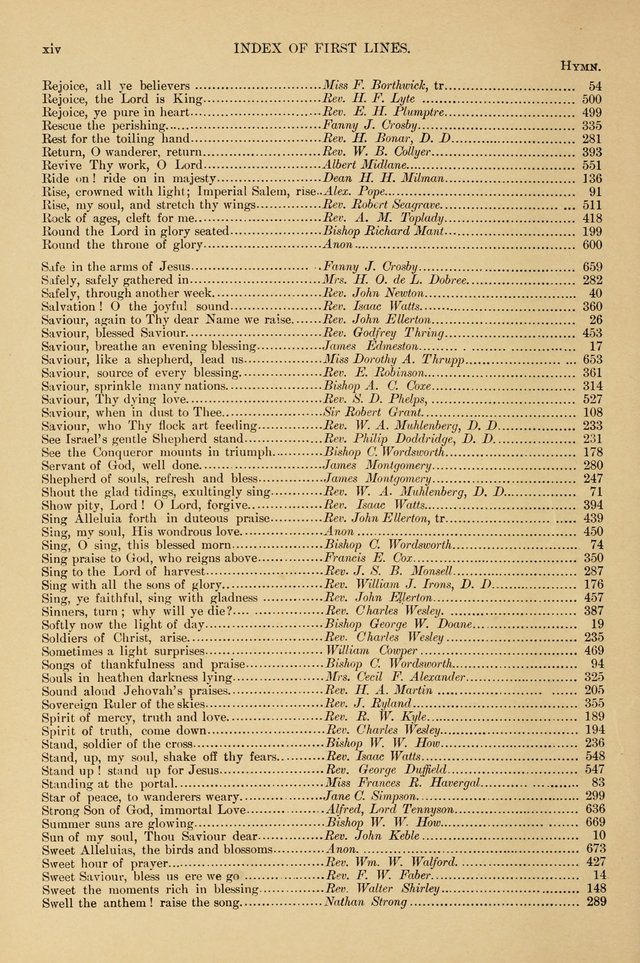 xiv INDEX OF FIRST LINES.
HYMN.
Rejoice, all ye believers ........ Miss F. Borthwick, tr ........ 54
Rejoice, the Lord is King ........ Rev. H. F. Lyte ........ 500
Rejoice, ye pure in heart ........ Rev. E. H. Plumptre ........ 499
Rescue the perishing ........ Fanny J. Crosby ........ 335
Rest for the toiling hand ........ Rev. H. Bonar, D. D ........ 281
Return, O wanderer, return ........ Rev. W. B. Collyer ........ 393
Revive Thy work, O Lord ........ Albert Midlane ........ 551
Ride on! ride on in majesty ........ Dean H. H. Milman ........ 136
Rise, crowned with light; Imperial Salem, rise .. Alex. Pope ........ 91
Rise, my soul, and stretch thy wings ........ Rev. Robert Seagrave ........ 511
Rock of ages, cleft for me ........ Rev. A. M. Toplady ........ 418
Round the Lord in glory seated ........ Bishop Richard Mant ........ 199
Round the throne of glory ........ Anon ........ 600
Safe in the arms of Jesus ........ Fanny J. Crosby ........ 659
Safely, safely gathered in ........ Mrs. H. O. de L. Dobree ........ 282
Safely, through another week ........ Rev. John Newton ........ 40
Salvation! O the joyful sound ........ Rev. Isaac Watts ........ 360
Saviour, again to Thy dear Name we raise ........ Rev. John Ellerton ........ 26
Saviour, blessed Saviour ........ Rev. Godfrey Thring ........ 453
Saviour, breathe an evening blessing ........ James Edmeston ........ 17
Saviour, like a shepherd, lead us ........ Miss Dorothy A. Thrupp ........ 653
Saviour, source of every blessing ........ Rev. E. Robinson ........ 361
Saviour, sprinkle many nations ........ Bishop A. C. Coxe ........ 314
Saviour, Thy dying love ........ Rev. S. D. Phelps, ........ 527
Saviour, when in dust to Thee ........ Sir Robert Grant ........ 108
Saviour, who Thy flock art feeding ........ Rev. W. A. Muhlenberg, D. D ........ 233
See Israel's gentle Shepherd stand ........ Rev. Philip Doddridge, D. D ........ 231
See the Conqueror mounts in triumph ........ Bishop C. Wordsworth ........ 178
Servant of God, well done ........ James Montgomery ........ 280
Shepherd of souls, refresh and bless ........ James Montgomery ........ 247
Shout the glad tidings, exultingly sing ........ Rev. W. A. Muhlenberg, D. D ........ 71
Show pity, Lord! O Lord, forgive ........ Rev. Isaac Watts ........ 394
Sing Alleluia forth in duteous praise ........ Rev. John Ellerton, tr ........ 439
Sing, my soul, His wondrous love ........ Anon ........ 450
Sing, O sing, this blessed morn ........ Bishop C. Wordsworth ........ 74
Sing praise to God, who reigns above ........ Francis E. Cox ........ 350
Sing to the Lord of harvest ........ Rev. J. S. B. Monsell ........ 287
Sing with all the sons of glory ........ Rev. William J. Irons, D. D ........ 176
Sing, ye faithful, sing with gladness ........ Rev. John Ellerton ........ 457
Sinners, turn; why will ye die? ........ Rev. Charles Wesley. ........ 387
Softly now the light of day ........ Bishop George W. Doane ........ 19
Soldiers of Christ, arise ........ Rev. Charles Wesley ........ 235
Sometimes a light surprises ........ William Cowper ........ 469
Songs of thankfulness and praise ........ Bishop C. Wordsworth ........ 94
Souls in heathen darkness lying ........ Mrs. Cecil F. Alexander ........ 325
Sound aloud Jehovah's praises ........ Rev. H. A. Martin ........ 205
Sovereign Ruler of the skies ........ Rev. J. Ryland ........ 355
Spirit of mercy, truth and love ........ Rev. R. W. Kyle ........ 189
Spirit of truth, come down ........ Rev. Charles Wesley ........ 194
Stand, soldier of the cross ........ Bishop W. W. How ........ 236
Stand, up, my soul, shake off thy fears ........ Rev. Isaac Watts ........ 548
Stand up! stand up for Jesus ........ Rev. George Duffield ........ 547
Standing at the portal ........ Miss Frances R. Havergal ........ 83
Star of peace, to wanderers weary ........ Jane C. Simpson ........ 299
Strong Son of God, immortal Love ........ Alfred, Lord Tennyson ........ 636
Summer suns are glowing ........ Bishop W. W. How ........ 669
Sun of my soul, Thou Saviour dear ........ Rev. John Keble ........ 10
Sweet Alleluias, the birds and blossoms ........ Anon. ........ 673
Sweet hour of prayer ........ Rev. Wm. W. Walford. ........ 427
Sweet Saviour, bless us ere we go ........ Rev. F. W. Faber ........ 14
Sweet the moments rich in blessing ........ Rev. Walter Shirley ........ 148
Swell the anthem! raise the song ........ Nathan Strong ........ 289